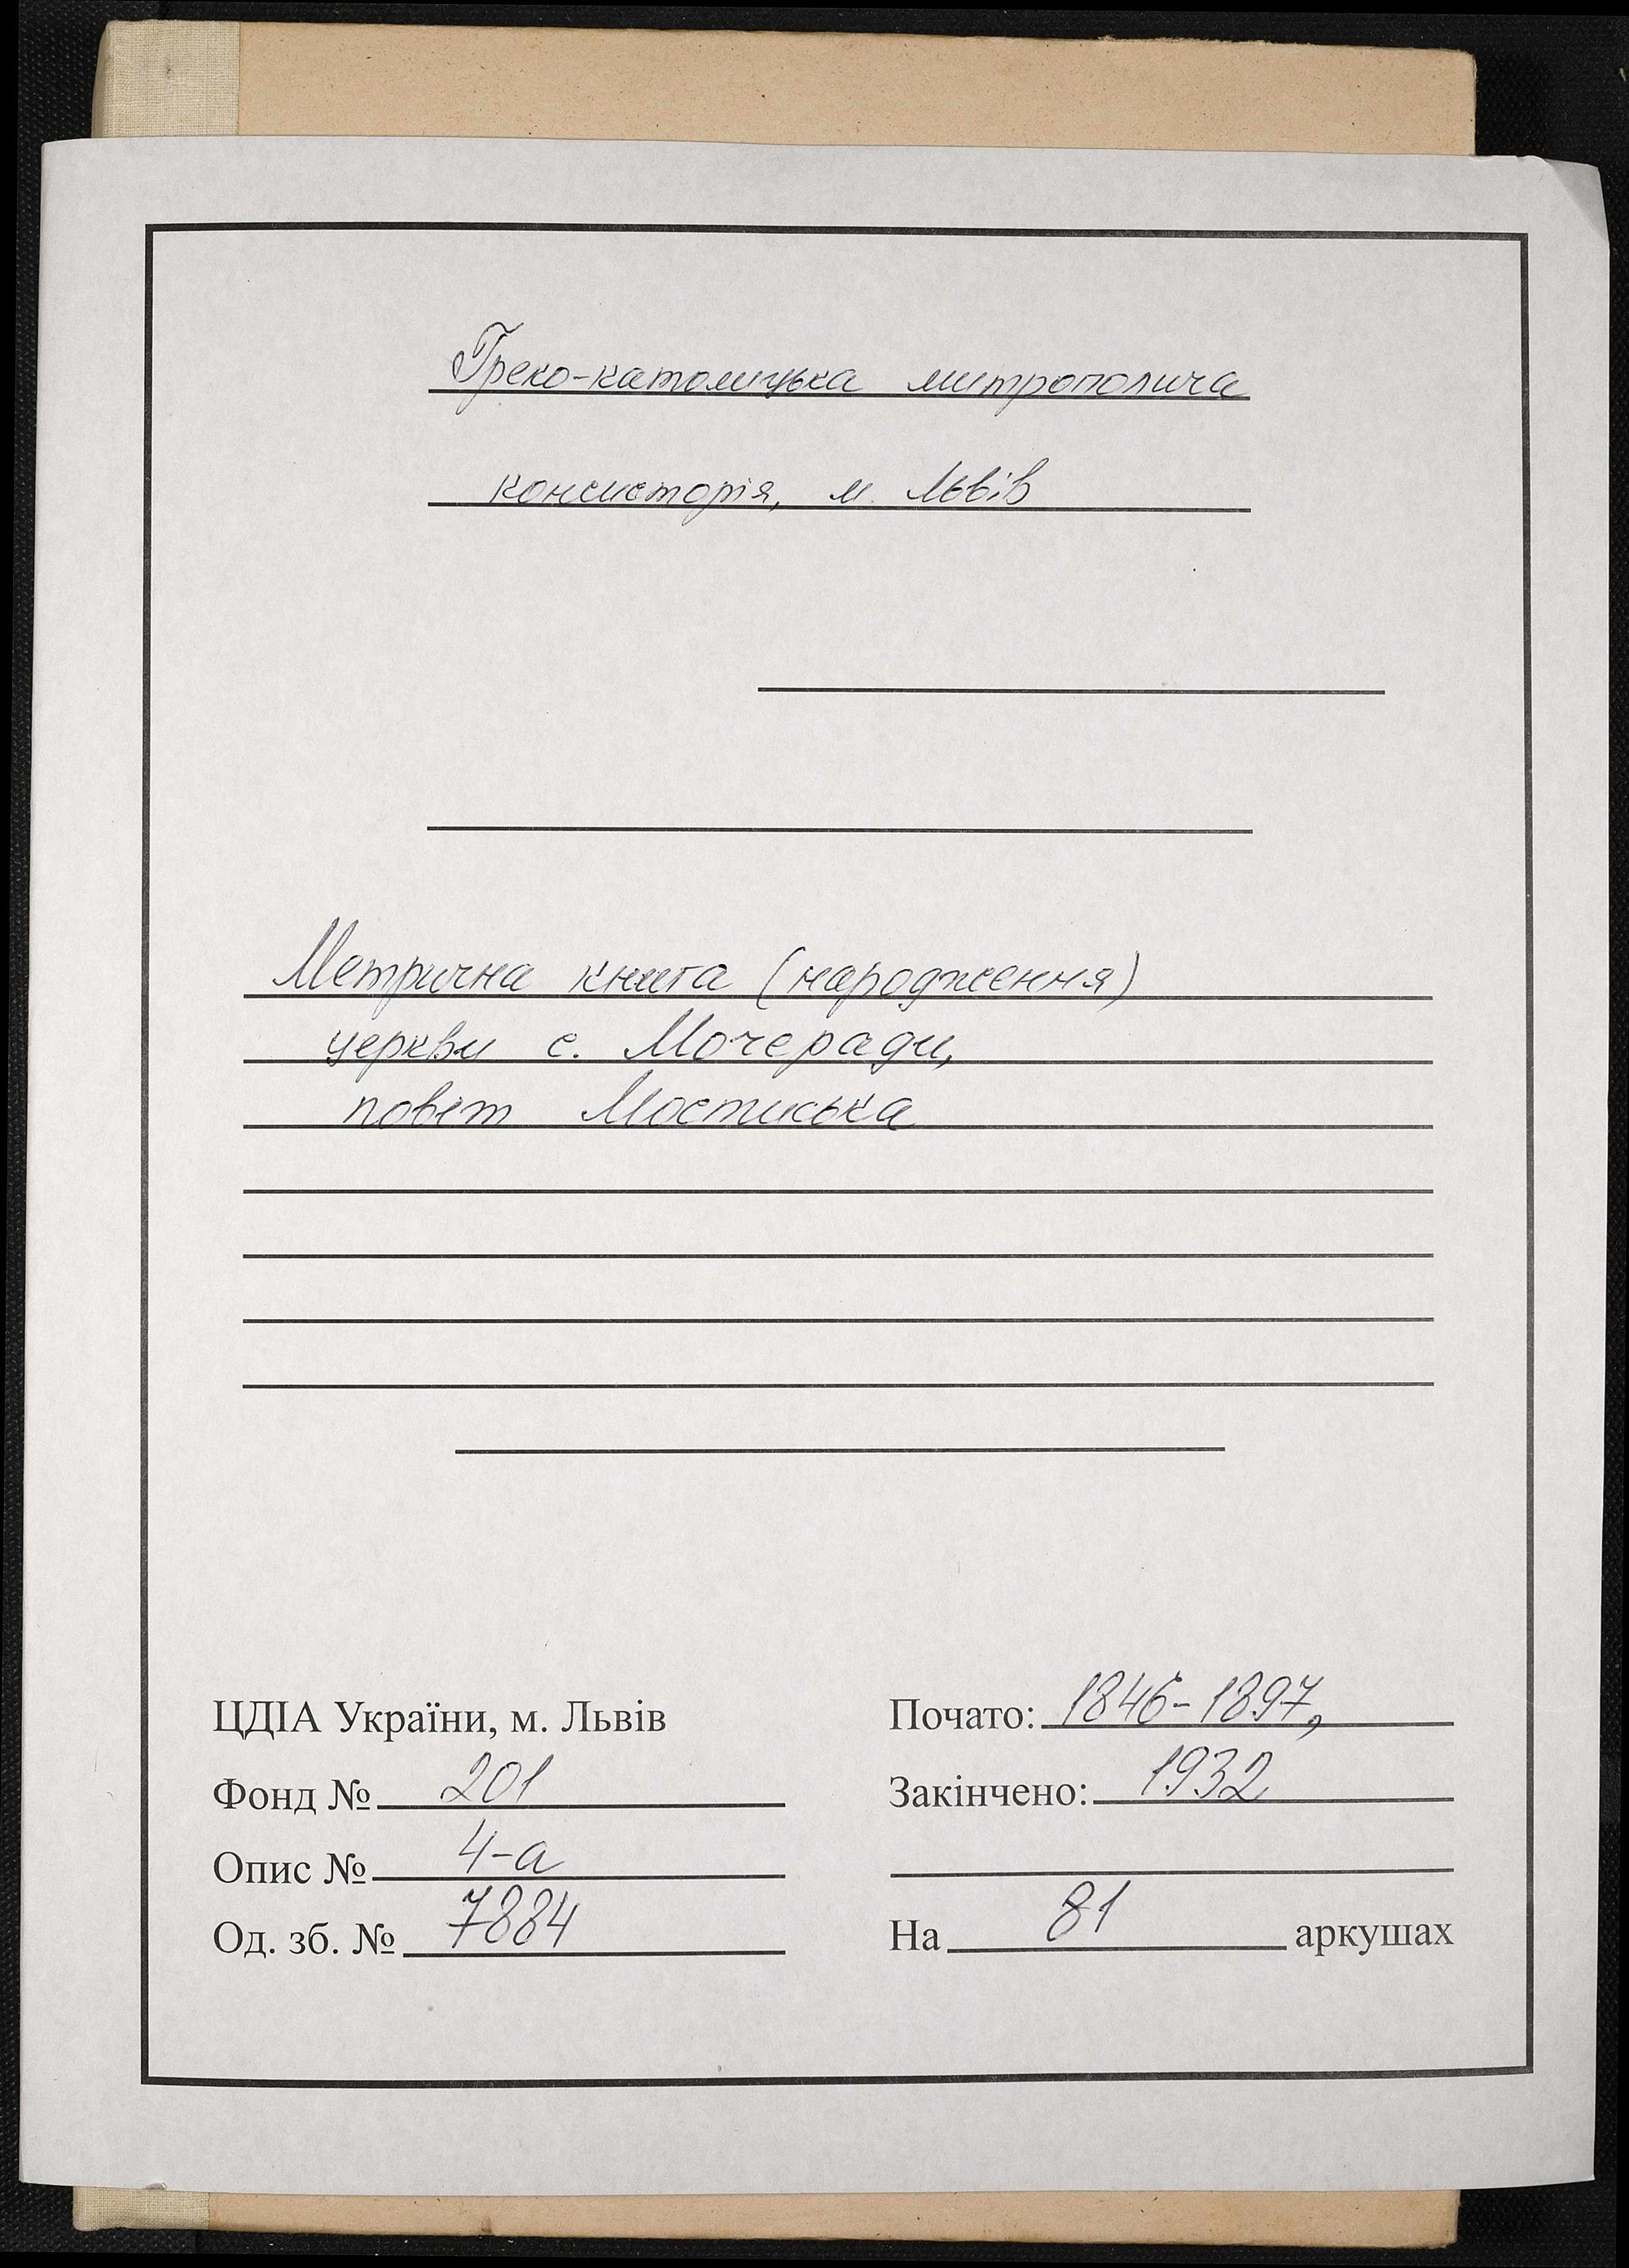 Греко-католицька митрополича
консисторія, м. Львів
Метрична книга (народження)
церкви с. Мочеради,
повіт Мостиська
ЦДІА України, м. Львів
Фонд № 201
Опис № 4-а
Од. зб. № 7884
Почато: 1846-1897,
Закінчено: 1932
На 81 аркушах